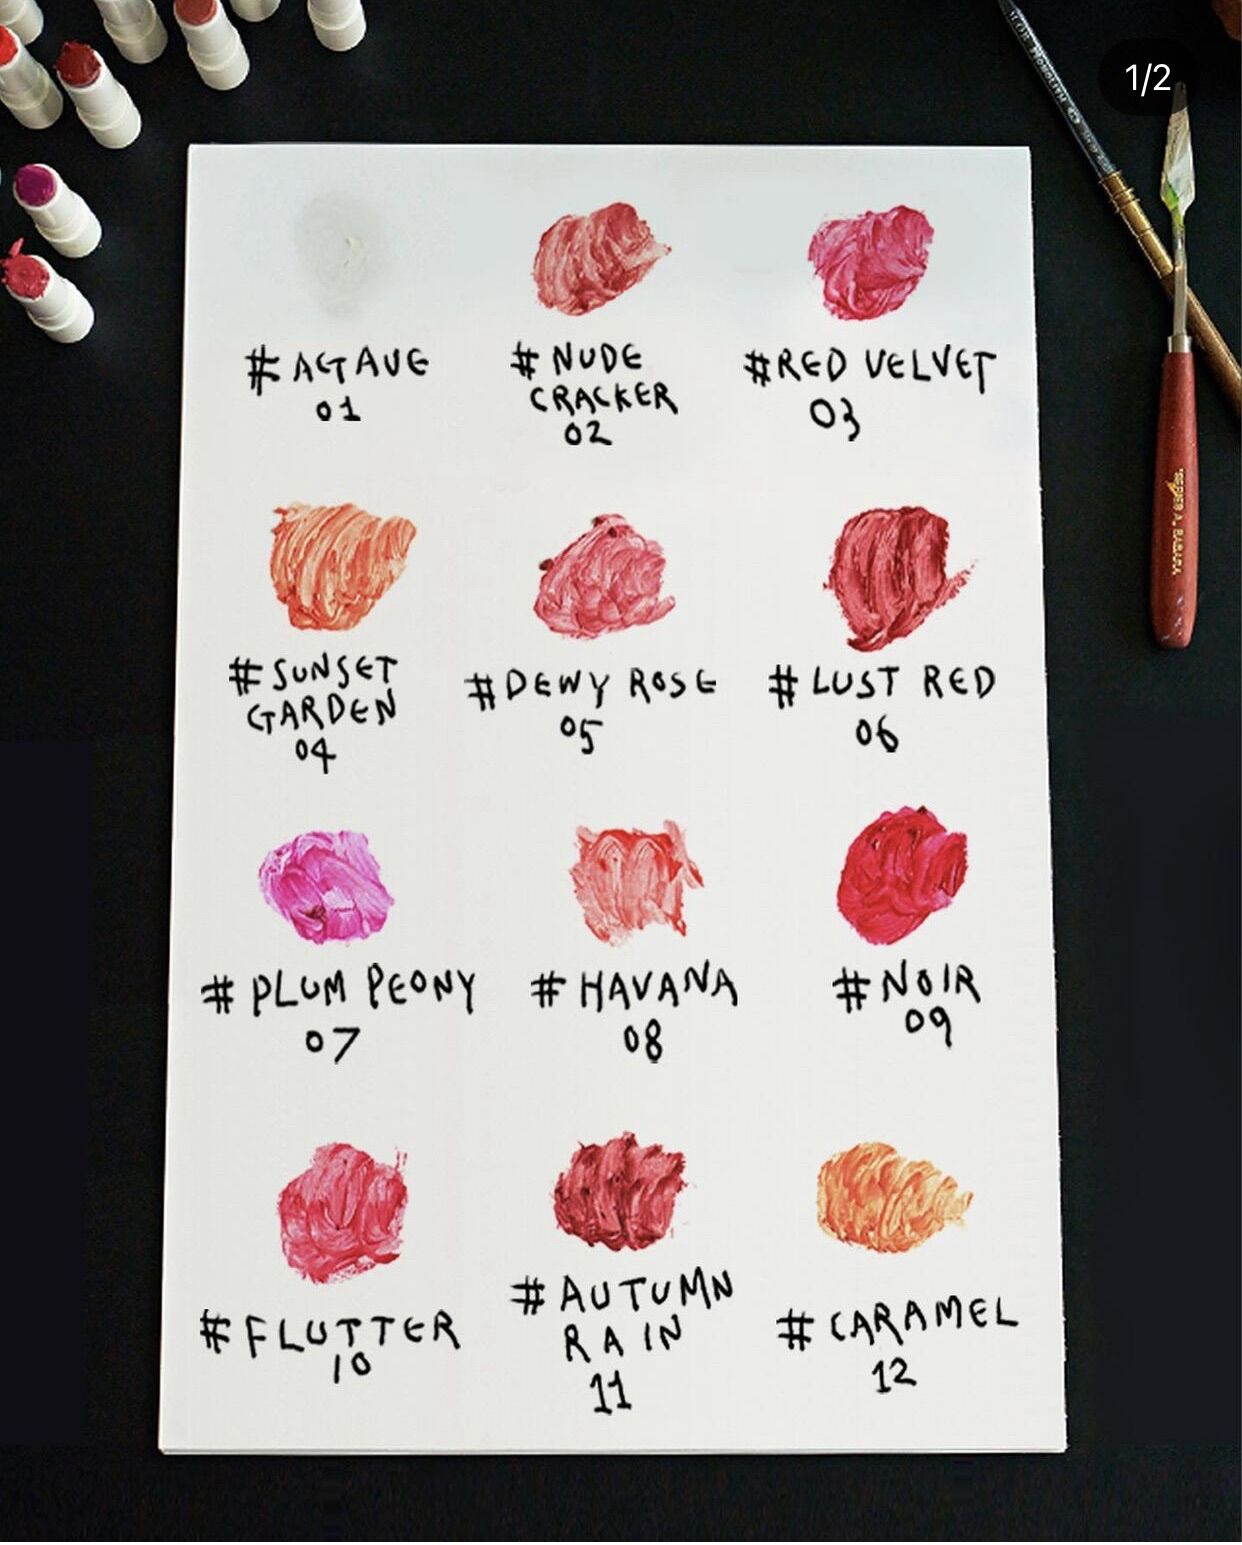 1/2
# AGTAVE
01
# NUDE
CRACKER
02
#RED VELVET
03
#SUNSET
GARDEN
04
#DEWY ROSE
05
# LUST RED
06
# PLUM PEONY
07
# HAVANA
08
# NOIR
09
#FLUTTER
10
# AUTUMN
RAIN
11
# CARAMEL
12